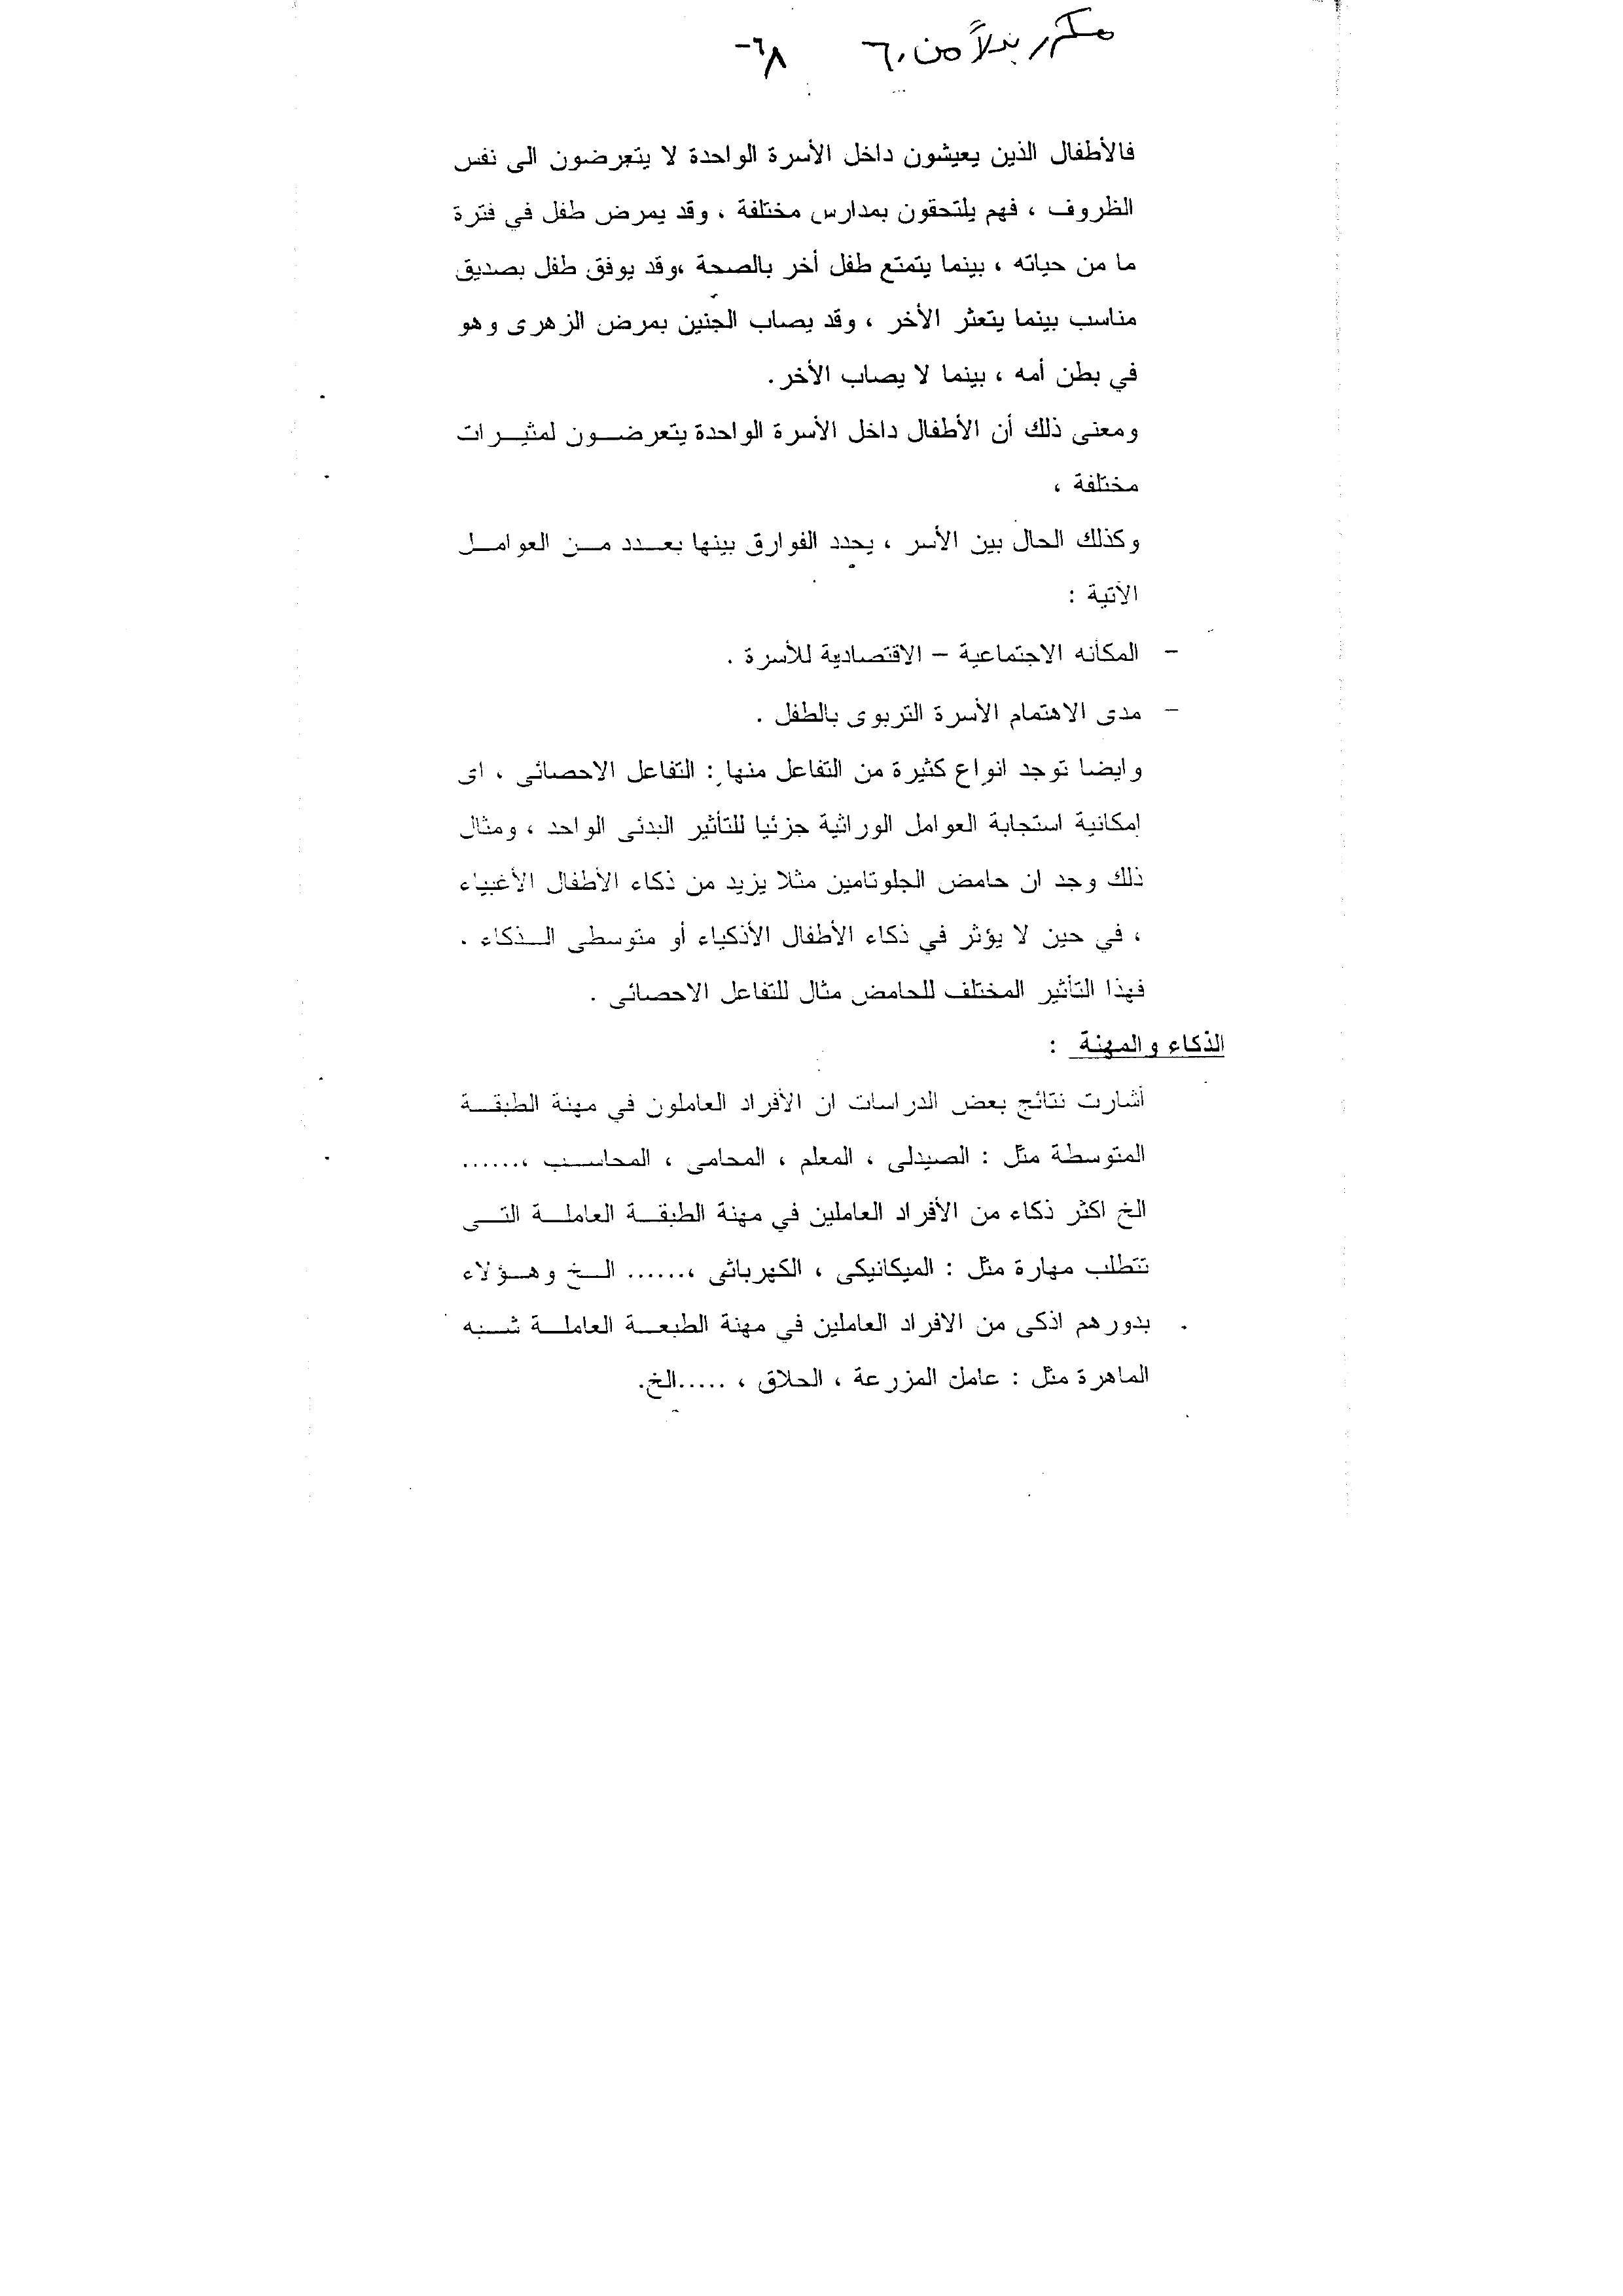 مكرر بدلاً من ٦٠ ٦٨-
فالأطفال الذين يعيشون داخل الأسرة الواحدة لا يتعرضون الى نفس
الظروف ، فهم يلتحقون بمدارس مختلفة ، وقد يمرض طفل في فترة
ما من حياته ، بينما يتمتع طفل أخر بالصحة ،وقد يوفق طفل بصديق
مناسب بينما يتعثر الأخر ، وقد يصاب الجنين بمرض الزهرى وهو
في بطن أمه ، بينما لا يصاب الأخر.
ومعنى ذلك أن الأطفال داخل الأسرة الواحدة يتعرضــون لمثيــرات
مختلفة ،
وكذلك الحال بين الأسر ، يحدد الفوارق بينها بعــدد مــن العوامــل
الآتية :
- المكانه الاجتماعية – الاقتصادية للأسرة .
- مدى الاهتمام الأسرة التربوى بالطفل .
وايضا توجد انواع كثيرة من التفاعل منها : التفاعل الاحصائى ، اى
إمكانية استجابة العوامل الوراثية جزئيا للتأثير البدئى الواحد ، ومثال
ذلك وجد ان حامض الجلوتامين مثلا يزيد من ذكاء الأطفال الأغبياء
، في حين لا يؤثر في ذكاء الأطفال الأذكياء أو متوسطى الــذكاء .
فهذا التأثير المختلف للحامض مثال للتفاعل الاحصائى .
الذكاء والمهنة :
أشارت نتائج بعض الدراسات ان الأفراد العاملون في مهنة الطبقــة
المتوسطة مثل : الصيدلى ، المعلم ، المحامى ، المحاســب ،......
الخ اكثر ذكاء من الأفراد العاملين في مهنة الطبقــة العاملــة التــى
تتطلب مهارة مثل : الميكانيكى ، الكهربائى ،...... الــخ وهــؤلاء
بدورهم اذكى من الافراد العاملين في مهنة الطبعــة العاملــة شــبه
الماهرة مثل : عامل المزرعة ، الحلاق ، .....الخ.